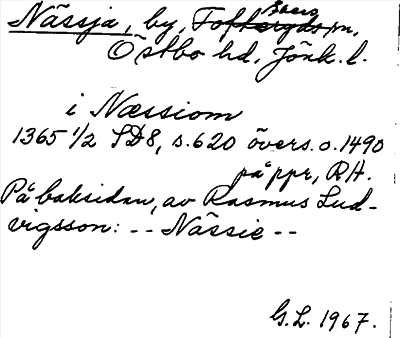 Nässja, by, Tofteryds sn,
Östbo hd, Jönk. l.
i Næssiom
1365 1/2 SD8, s. 620 övers. o. 1490
på ppr, RA.
På baksidan, av Rasmus Lud-
vigsson: -- Nässie --
G.L. 1967.